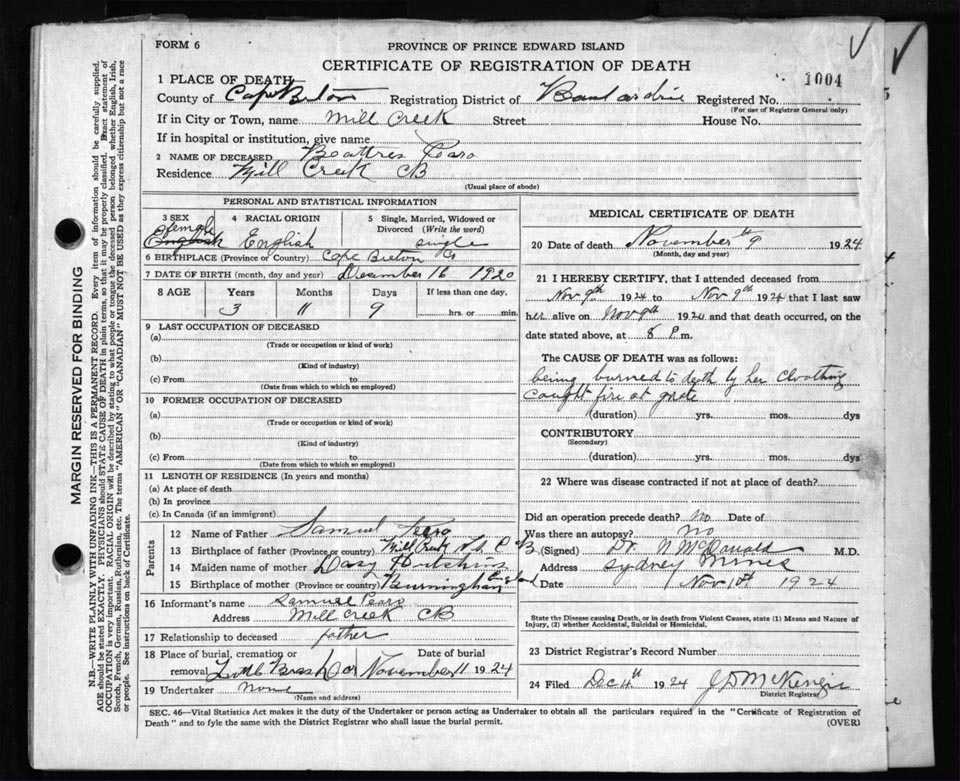 FORM 6
PROVINCE OF PRINCE EDWARD ISLAND
CERTIFICATE OF REGISTRATION OF DEATH
1004
1 PLACE OF DEATH
County of Cape Breton Registration District of Registered No.
(For use of Registrar General only)
If in City or Town, name Mill Creek Street House No.
If in hospital or institution, give name
2 NAME OF DECEASED
Residence Mill Creek CB
(Usual place of abode)
PERSONAL AND STATISTICAL INFORMATION
3 SEX 4 RACIAL ORIGIN 5 Single, Married, Widowed or Divorced (Write the word)
female English single
6 BIRTHPLACE (Province or Country) Cape Breton Co
7 DATE OF BIRTH (month, day and year) December 16 1920
8 AGE Years Months Days If less than one day,
3 11 9 hrs. or min.
9 LAST OCCUPATION OF DECEASED
(a)
(Trade or occupation or kind of work)
(b)
(Kind of industry)
(c) From to
(Date from which to which so employed)
10 FORMER OCCUPATION OF DECEASED
(a)
(Trade or occupation or kind of work)
(b)
(Kind of industry)
(c) From to
(Date from which to which so employed)
11 LENGTH OF RESIDENCE (In years and months)
(a) At place of death
(b) In province
(c) In Canada (if an immigrant)
Parents
12 Name of Father Samuel
13 Birthplace of father (Province or country) Mill Creek C B
14 Maiden name of mother Dasy
15 Birthplace of mother (Province or country) Burmingham England
16 Informant's name Samuel
Address Mill Creek CB
17 Relationship to deceased father
18 Place of burial, cremation or removal Date of burial
November 11 1924
19 Undertaker none
(Name and address)
MEDICAL CERTIFICATE OF DEATH
20 Date of death November 9th 1924
(Month, day and year)
21 I HEREBY CERTIFY, that I attended deceased from
Nov 9th 1924 to Nov 9th 1924 that I last saw
her alive on Nov 9th 1924 and that death occurred, on the
date stated above, at 8 P.m.
The CAUSE OF DEATH was as follows:
being burned to death by her cloothing
caught fire at grate
(duration) yrs. mos. dys
CONTRIBUTORY
(Secondary)
(duration) yrs. mos. dys
22 Where was disease contracted if not at place of death?
Did an operation precede death? No Date of
Was there an autopsy? No
(Signed) Dr. N McDonald M.D.
Address Sydney Mines
Date Nov 10th 1924
State the Disease causing Death, or in death from Violent Causes, state (1) Means and Nature of
Injury, (2) whether Accidental, Suicidal or Homicidal.
23 District Registrar's Record Number
24 Filed Dec 4th 1924 J D McKenzie
District Registrar
SEC. 46—Vital Statistics Act makes it the duty of the Undertaker or person acting as Undertaker to obtain all the particulars required in the "Certificate of Registration of
Death" and to fyle the same with the District Registrar who shall issue the burial permit.
(OVER)
MARGIN RESERVED FOR BINDING
N.B.—WRITE PLAINLY WITH UNFADING INK—THIS IS A PERMANENT RECORD. Every item of information should be carefully supplied.
AGE should be stated EXACTLY. PHYSICIANS should STATE CAUSE OF DEATH in plain terms, so that it may be properly classified. Exact statement of
OCCUPATION is very important. RACIAL ORIGIN will be described by stating to what people or tongue the deceased person belonged whether English, Irish,
Scotch, French, German, Russian, Ruthenian, etc. The terms "AMERICAN" OR "CANADIAN" MUST NOT BE USED as they express citizenship but not a race
or people. See instructions on back of Certificate.